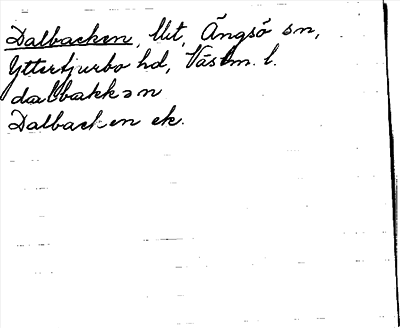 Dalbacken, Utt, Ängsö sn,
Yttertjurbo hd, Västm. l.
dalbakkən
Dalbacken ek.